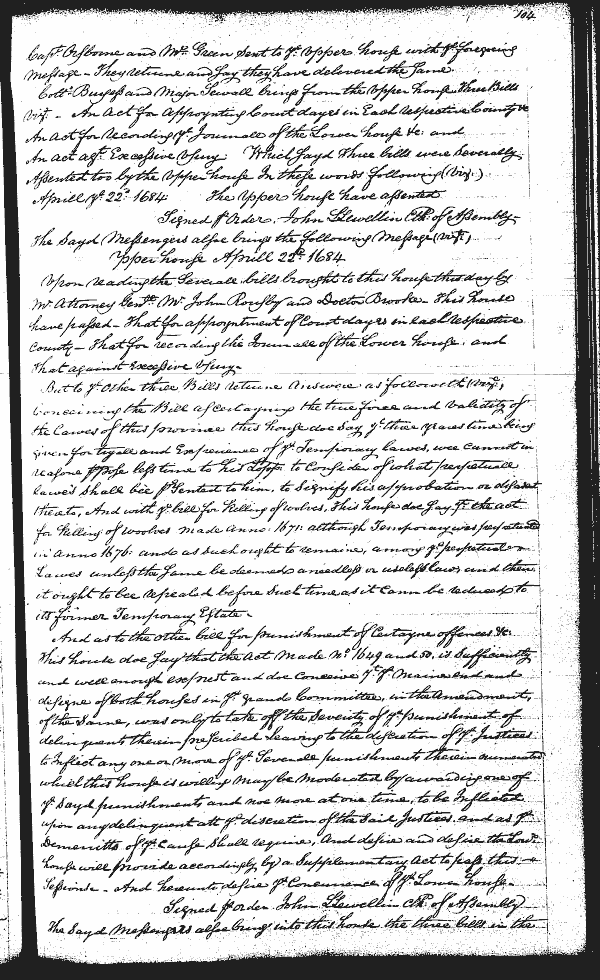 104
Capt. Osborne and Mr. Green sent to ye. Upper house with ye. foregoing
Message - They returne and say they have delivered the Same
Coll. Burgess and Major Sewall brings from the Upper house Three Bills
vizt. - An Act for Appoynting Court dayes in Each respective County &c
An Act for recording ye Journall of the Lower house &c. and
An act agt. Excessive Usury Which sayd three bills were Severally
Assented too by the Upper house In these words following (viz.)
Aprill ye. 22d. 1684 The Upper house have assented
Signed p Order. John Llewellin Clk. of Assembly.
The Sayd Messengers alsoe brings the following Message (vizt,)
Upper house Aprill 22d. 1684
Upon reading the Severall bills brought to this house this day by
Mr. Attorney Genll. Mr. John Rousby and Doctr. Brooke - This house
have passed - That for appoyntment of Court dayes in each respective
County - That for recording the Journall of the Lower house, and
That against Excessive Usury.
But to ye Other three Bills returne Answere as followeth (vizt.,
Concerning the Bill ascertayning the true force and validity of
the Lawes of this province this house doe Say yt. three yeares time being
given for tryall and Experience of ye. Temporary lawes, wee cannot in
reasone ppose less time to his Lopps to Consider of what perpetuall
lawes Shall bee psented to him, to Signify his approbation or disassent
thereto, And with ye bill for killing of wolves, This house doe Say yt. the act
for killing of woolves made Anno. 1671. although Temporary was perpetuated
in Anno 1676. and as such ought to remaine, among ye perpetual
Lawes unless the Same be deemed a needless or useless law, and then
it ought to bee repealed before Such time as it cann be reduced to
its former Temporary Estate.
And as to the other bill for punishment of Certayne offences &c.
This house doe Say that the Act Made No. 1649 and 50. is Sufficiently
and well enough exprest and doe Conceive yt. ye Maine end and
designe of both houses in ye. grand Committee, in the Amendment,
of the Same, was only to take off the Severity of ye. punishment of
delinquents therein prescribed leaving to the discretion of ye. Justices
to Inflict any one or more of ye. Severall punishments therein numerated
which this house is willing may be moderated by awarding one of
ye. Sayd punishments and noe more at one time, to be Inflicted
upon any delinquent att ye. discretion of the Said Justices. and as ye.
Demeritts of ye. Cause Shall require, And desire and desire the Lowr.
house will provide accordingly by a Supplementary Act to pass this
Sessions. - And hereunto desire ye. Concurrence of ye. Lower house.
Signed p order John Llewellin Clk. of Assembly
The Sayd Messengers alsoe bring into this house the three bills in the